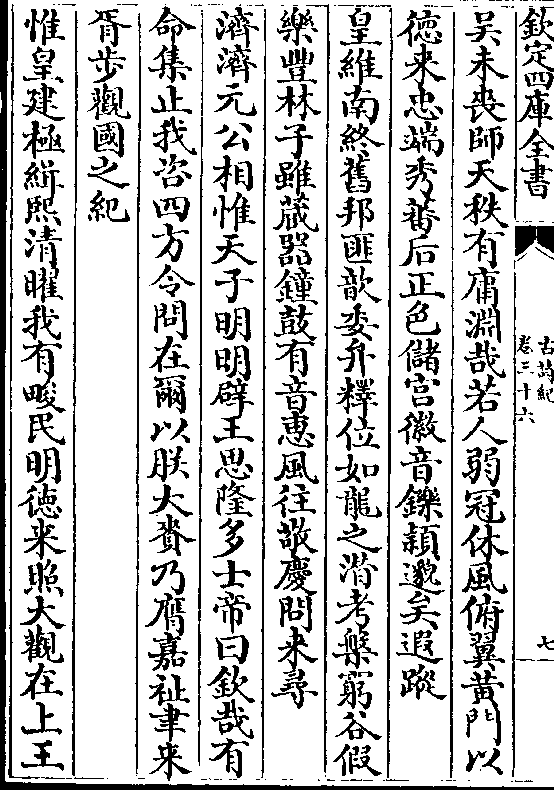 欽定四庫全書
古詩紀
卷三十六
七
吴未喪師天秩有庸淵哉若人弱冠休風俯翼黄門以
徳来忠端秀蕃后正色儲宫徽音鑠頴邈矣遐蹤
皇維南終舊邦匪歆委弁釋位如龍之潛考槃窮谷假
樂豐林子雖藏器鐘鼓有音惠風往敬慶問来尋
濟濟元公相惟天子明明辟王思隆多士帝曰欽哉有
命集止我咨四方令問在爾以朕大賚乃膺嘉祉聿来
胥步觀國之紀
惟皇建極緝熙清曜我有畯民明徳来照大觀在上王